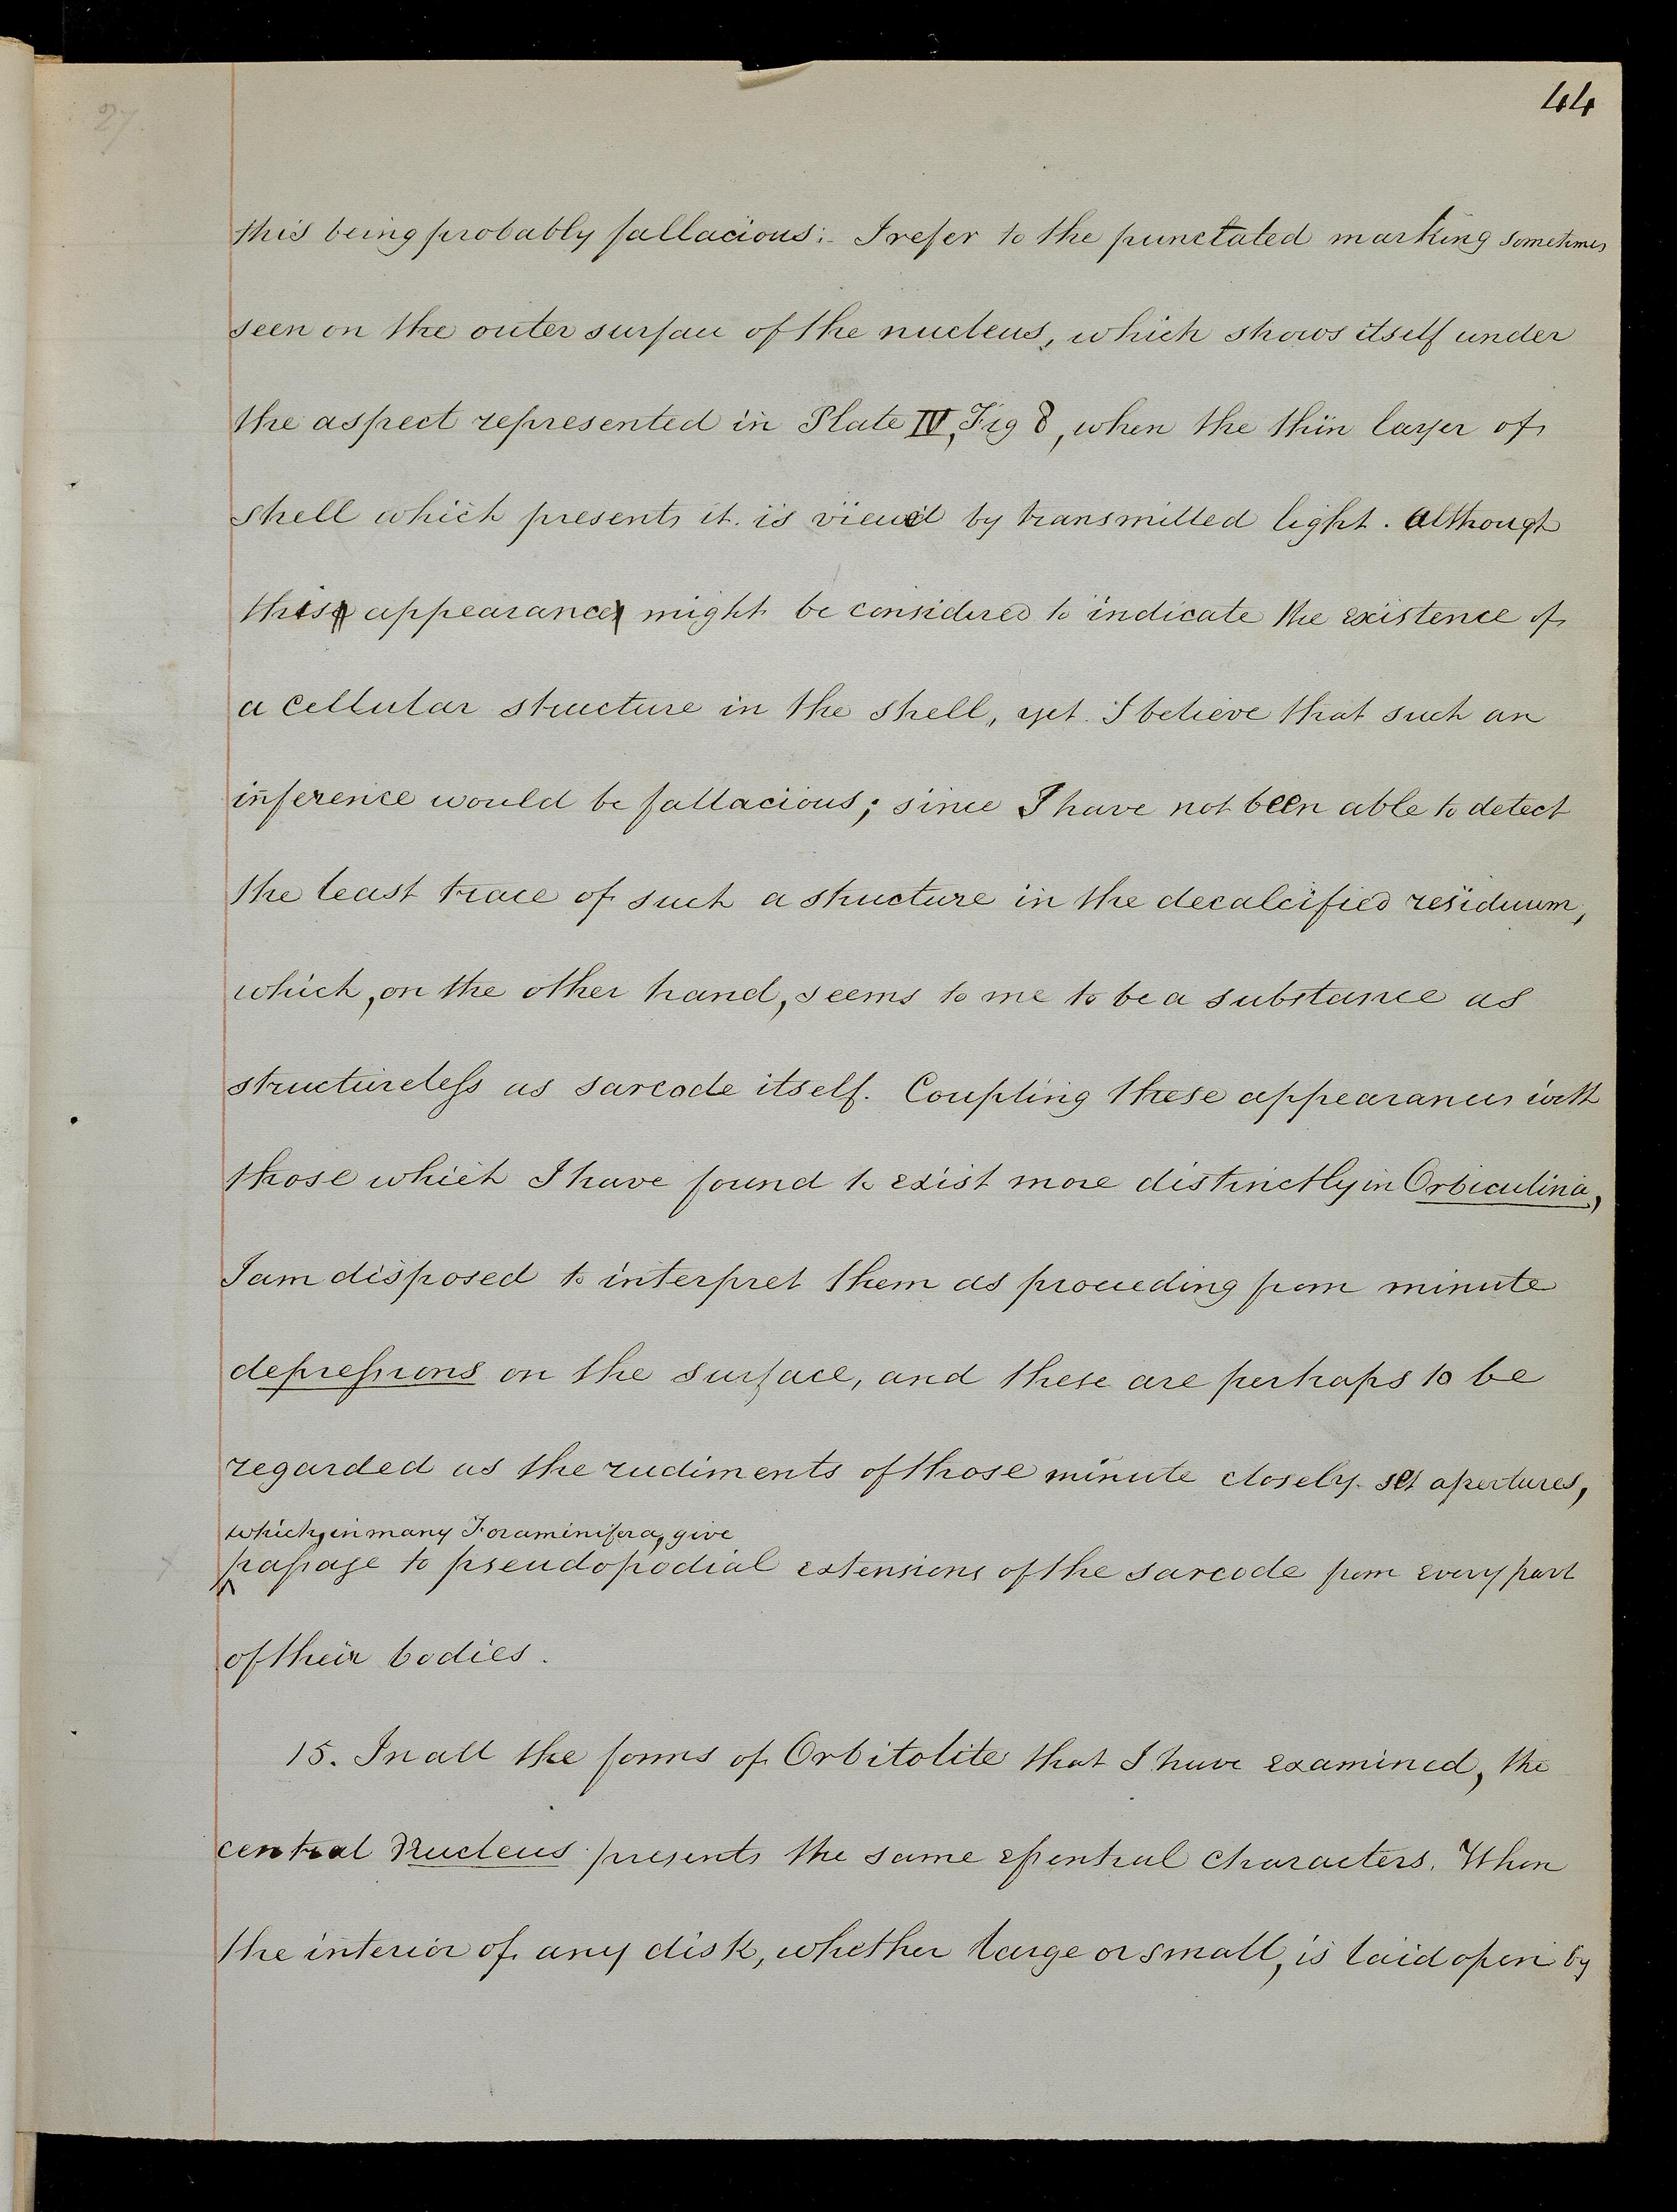 27.
44
this being probably fallacious:- I refer to the punctated marking sometimes
seen on the outer surface of the nucleus, which shows itself under
the aspect represented in Plate IV, Fig 8, when the thin layer of
shell which presents it is viewed by transmitted light. Although
this appearance might be considered to indicate the existence of
a cellular structure in the shell, yet I believe that such an
inference would be fallacious; since I have not been able to detect
the least trace of such a structure in the decalcified residuum,
which, on the other hand, seems to me to be a substance as
structureless as sarcode itself. Coupling these appearances with
those which I have found to exist more distinctly in Orbiculina,
I am disposed to interpret them as proceeding from minute
depressions on the surface, and these are perhaps to be
regarded as the rudiments of those minute closely-set apertures,
which, in many Foraminifera, give
passage to pseudopodial extensions of the sarcode from every part
of their bodies.
15. In all the forms of Orbitolite that I have examined, the
central Nucleus presents the same essential characters. When
the interior of any disk, whether large or small, is laid open by